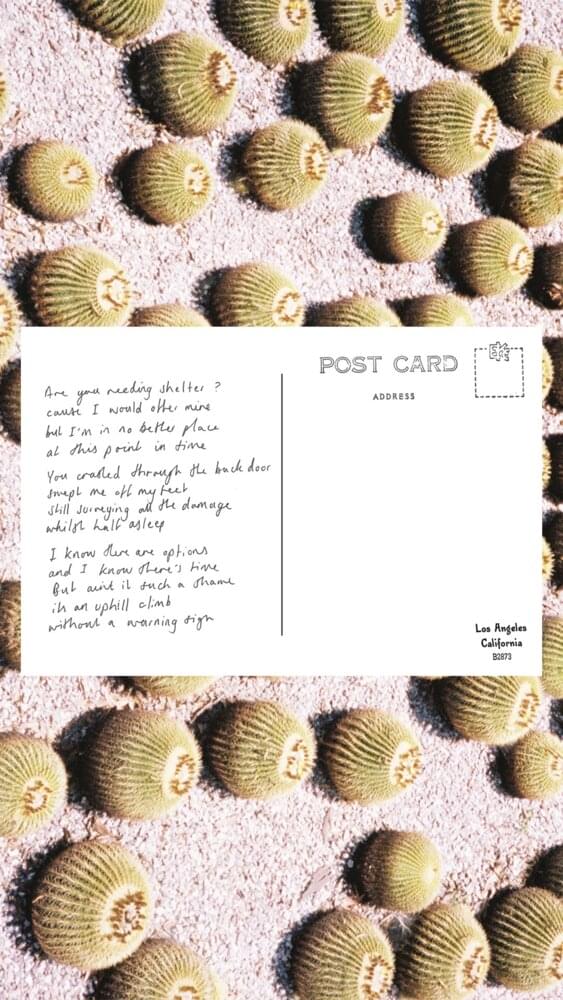 Are you needing shelter ?
cause I would offer mine
but I'm in no better place
at this point in time
You crashed through the back door
swept me off my feet
still surveying all the damage
whilst half asleep
I know there are options
and I know there's time
But aint it such a shame
its an uphill climb
without a warning sign
POST CARD
ADDRESS
Los Angeles
California
B2873